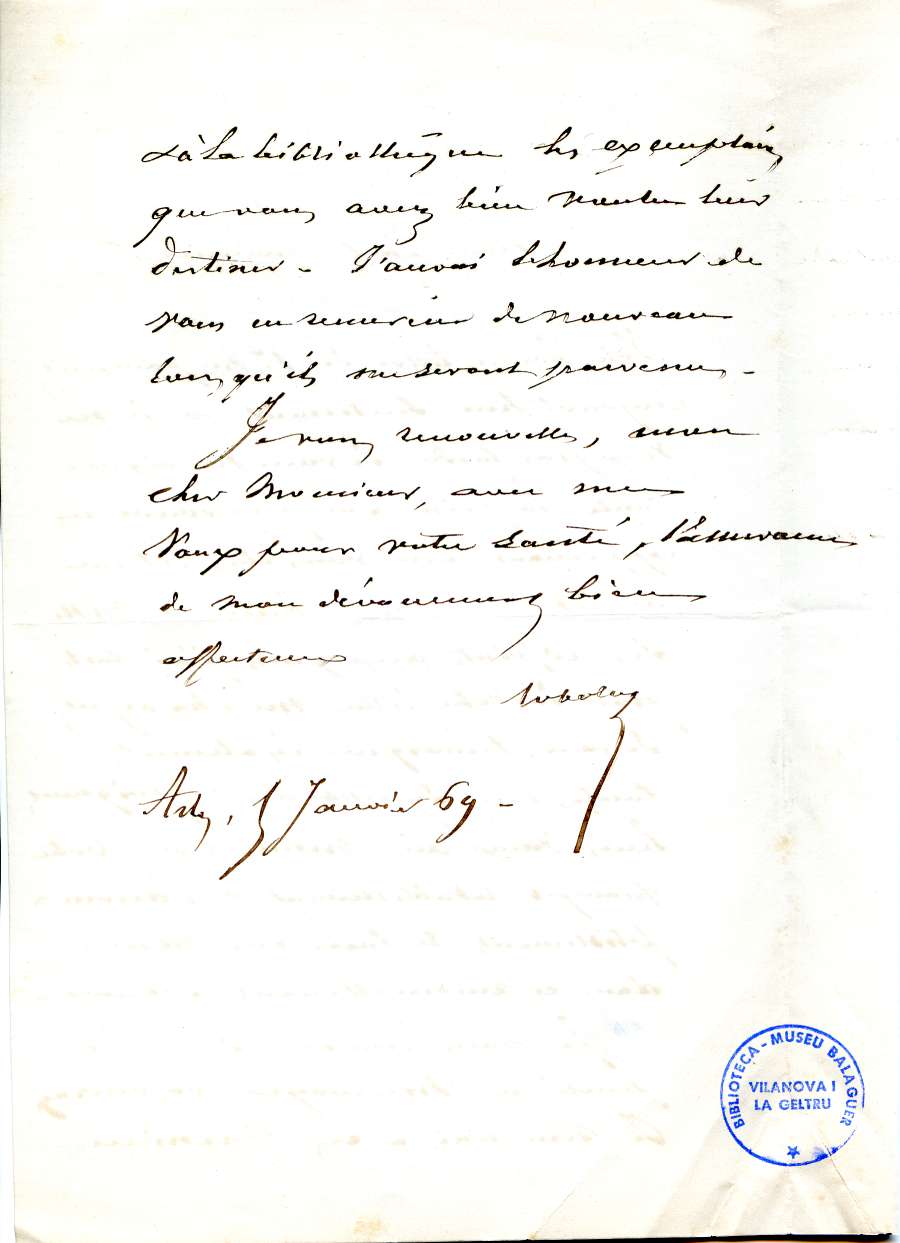 & à la bibliothèque les exemplaires
que vous avez bien voulu leur
destiner - J'aurai l'honneur de
vous en remercier de nouveau
lorsqu'ils me seront parvenus -
Je vous renouvelle, mon
cher Monsieur, avec mes
Vœux pour votre santé, l'assurance
de mon dévouement bien
affectueux
Arles, 5 Janvier 69 -
BIBLIOTECA - MUSEU BALAGUER
VILANOVA I
LA GELTRU